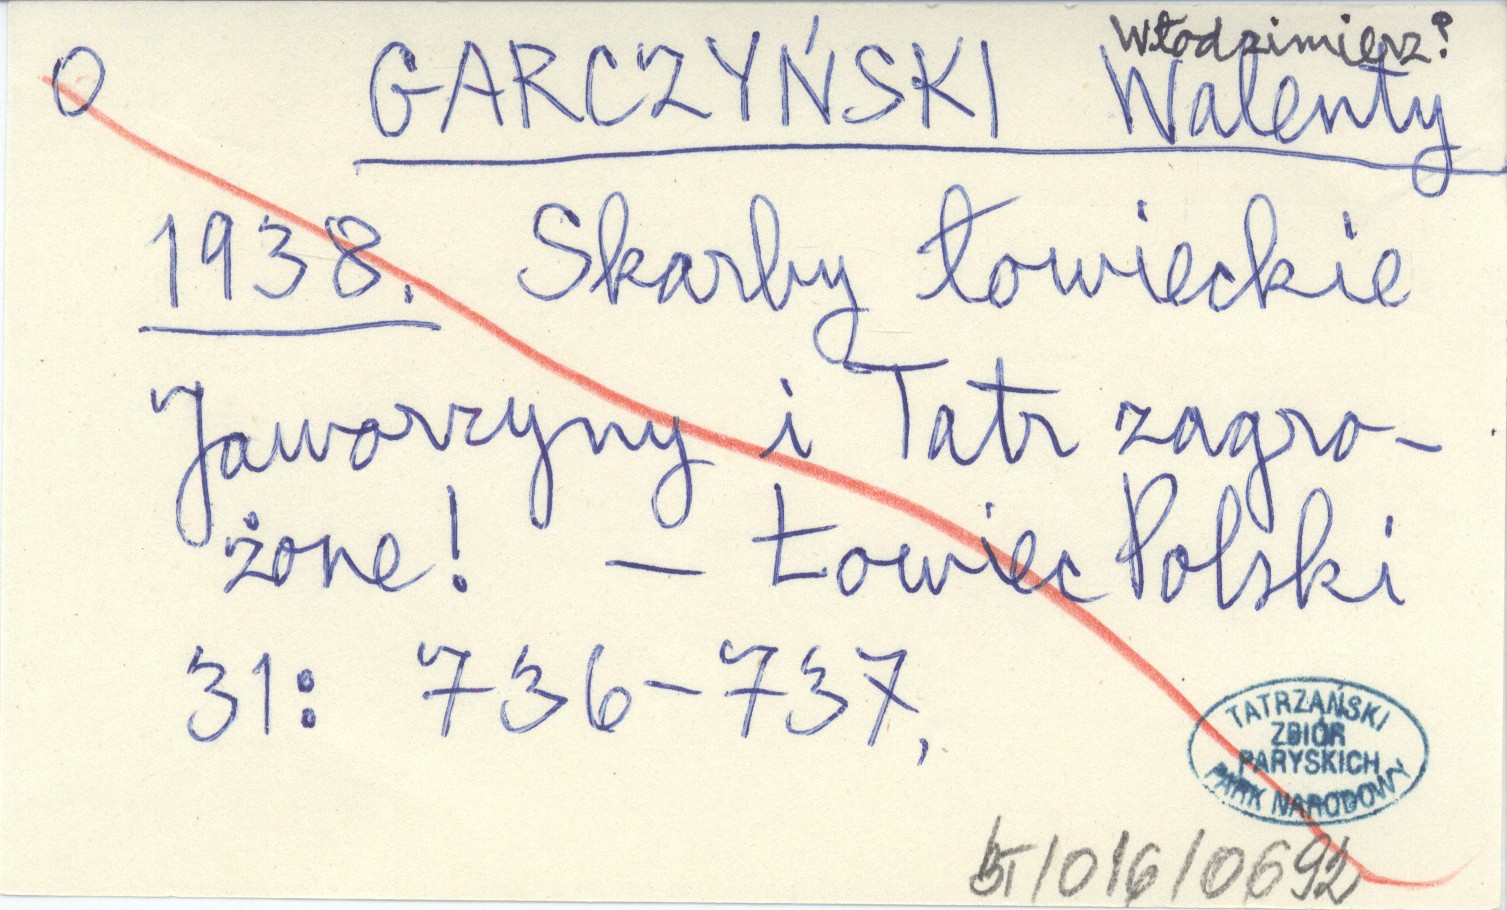 Włodzimierz?
O GARCZYŃSKI Walenty
1938. Skarby łowieckie
Jaworzyny i Tatr zagro-
żone! — Łowiec Polski
31: 736-737,
TATRZAŃSKI
ZBIÓR
PARYSKICH
PARK NARODOWY
/016/0692